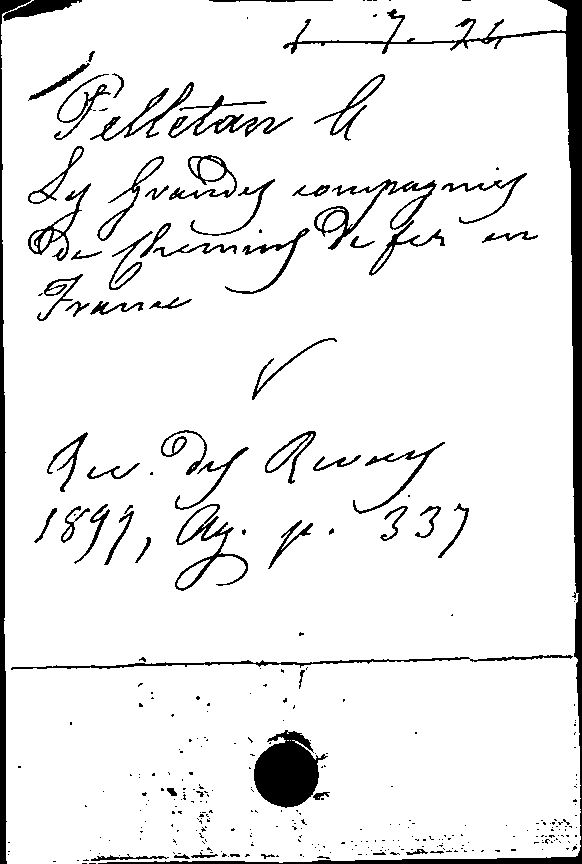 1. 7. 24
Pelletan C
Les Grandes compagnies
de chemins de fer en
France
Rev. des Revues
1899, Ag. p. 337